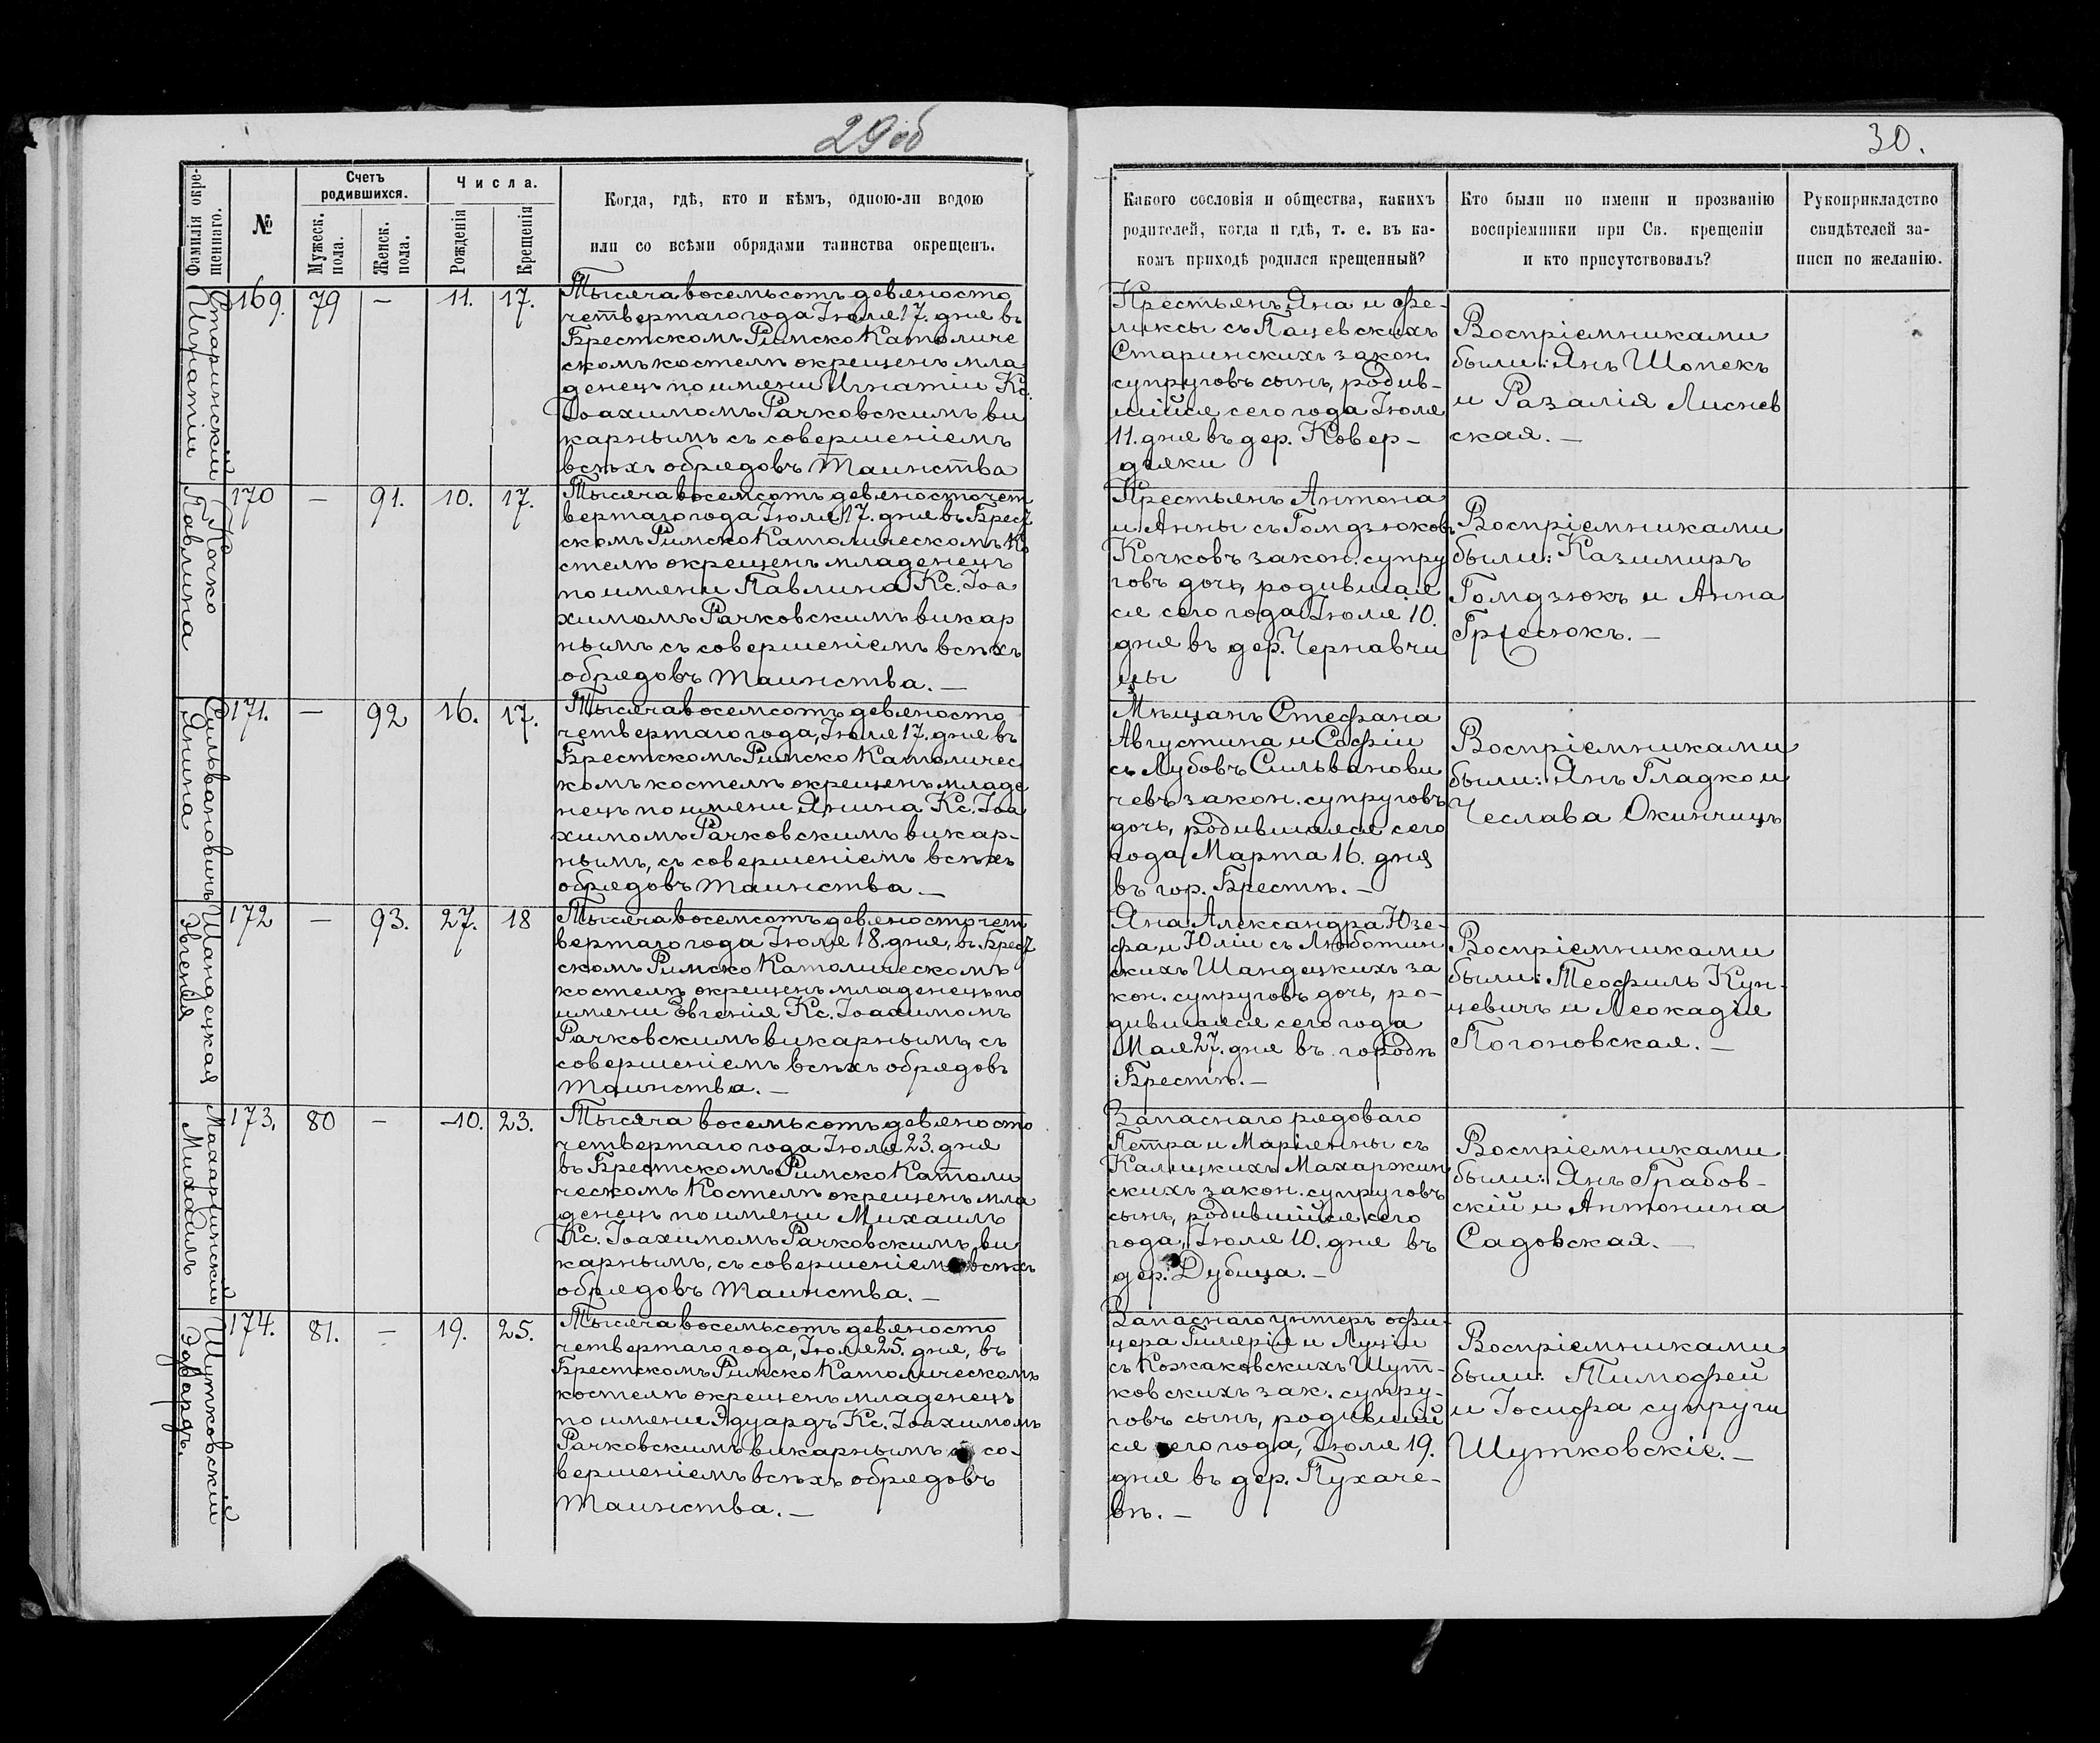 29 об
30.
Фамилія окре-
щеннаго.
№
Счетъ
родившихся.
Мужеск.
пола.
Женск.
пола.
Числа.
Рожденія
Крещенія
Когда, гдѣ, кто и кѣмъ, одною-ли водою
или со всѣми обрядами таинства окрещенъ.
Какого сословія и общества, какихъ
родителей, когда и гдѣ, т. е. въ ка-
комъ приходѣ родился крещенный?
Кто были по имени и прозванію
воспріемники при Св. крещеніи
и кто присутствовалъ?
Рукоприкладство
свидѣтелей за-
писи по желанію.
Старинскій
Игнатій
169. 79 — 11. 17.
Тысяча восемьсотъ девяносто
четвертаго года Іюля 17. дня въ
Брестскомъ Римско Католиче
скомъ костелѣ окрещенъ мла
денецъ по имени Игнатій Кс.
Іоахимомъ Рачковскимъ ви
карнымъ съ совершеніемъ
всѣхъ обрядовъ Таинства
Крестьянъ Яна и Фе-
ликсы съ Пацевскихъ
Старинскихъ закон.
супруговъ сынъ, родив-
шійся сего года Іюля
11. дня въ дер. Ковер-
дяки
Воспріемниками
были: Янъ Шопекъ
и Разалія Лиснев
ская. —
Кочко
Павлина
170 — 91. 10. 17.
Тысяча восемсотъ девяносто чет
вертаго года Іюля 17. дня въ Брест
скомъ Римско Католическомъ Ко
стелѣ окрещенъ младенецъ
по имени Павлина Кс. Іоа
химомъ Рачковскимъ викар
нымъ съ совершеніемъ всѣхъ
обрядовъ Таинства. —
Крестьянъ Антона
и Анны съ Гомдзюковъ
Кочковъ закон. супру
говъ дочь, родившая
ся сего года Іюля 10.
дня въ дер. Чернавчи
цы
Воспріемниками
были: Казимиръ
Гомдзюкъ и Анна
Сильвановичъ
Янина
171. — 92 16. 17.
Тысяча восемсотъ девяносто
четвертаго года, Іюля 17. дня въ
Брестскомъ Римско Католичес
комъ костелѣ окрещенъ младе
нецъ по имени Янина Кс. Іоа
химомъ Рачковскимъ викар-
нымъ, съ совершеніемъ всѣхъ
обрядовъ Таинства. —
Мѣщанъ Стефана
Августина и Софіи
съ Лубовъ Сильванови
чевъ закон. супруговъ
дочь, родившаяся сего
года Марта 16. дня
въ гор. Брестѣ. —
Воспріемниками
были: Янъ Гладко и
Чеслава Окинчицъ
Шандецкая
Эвгенія
172 — 93. 27. 18
Тысяча восемсотъ девяносто чет
вертаго года Іюля 18. дня, въ Брест
скомъ Римско Католическомъ
костелѣ окрещенъ младенецъ по
имени Евгенія Кс. Іоахимомъ
Рачковскимъ викарнымъ, съ
совершеніемъ всѣхъ обрядовъ
Таинства. —
Яна Александра Юзе-
фа и Юліи съ Люботин
скихъ Шандецкихъ за
кон. супруговъ дочь, ро-
дившаяся сего года
Мая 27. дня въ городѣ
Брестѣ. —
Воспріемниками
были: Теофиль Кун-
цевичъ и Леокадія
Погоновская. —
Махаржинскій
Михаилъ
173. 80 — 10. 23.
Тысяча восемьсотъ девяносто
четвертаго года Іюля 23. дня
въ Брестскомъ Римско Католи
ческомъ Костелѣ окрещенъ мла
денецъ по имени Михаилъ
Кс. Іоахимомъ Рачковскимъ, ви
карнымъ, съ совершеніемъ всѣхъ
обрядовъ Таинства. —
Запаснаго рядоваго
Петра и Маріянны съ
Калицкихъ Махаржин
скихъ закон. супруговъ
сынъ, родившійся сего
года, Іюля 10. дня въ
дер. Дубица. —
Воспріемниками
были: Янъ Грабов-
скій и Антонина
Садовская. —
Шутковскій
Эдвардъ.
174. 81. — 19. 25.
Тысяча восемьсотъ девяносто
четвертаго года, Іюля 25. дня, въ
Брестскомъ Римско Католическомъ
костелѣ окрещенъ младенецъ
по имени Эдуардъ Кс. Іоахимомъ
Рачковскимъ викарнымъ со-
вершеніемъ всѣхъ обрядовъ
Таинства. —
Запаснаго унтеръ офи-
цера Гилярія и Луціи
съ Кожаковскихъ Шут-
ковскихъ зак. супру-
говъ сынъ, родивший
ся сего года, Іюля 19.
дня въ дер. Пухаче-
вѣ. —
Воспріемниками
были: Тимофей
и Іосифа супруги
Шутковскіе. —